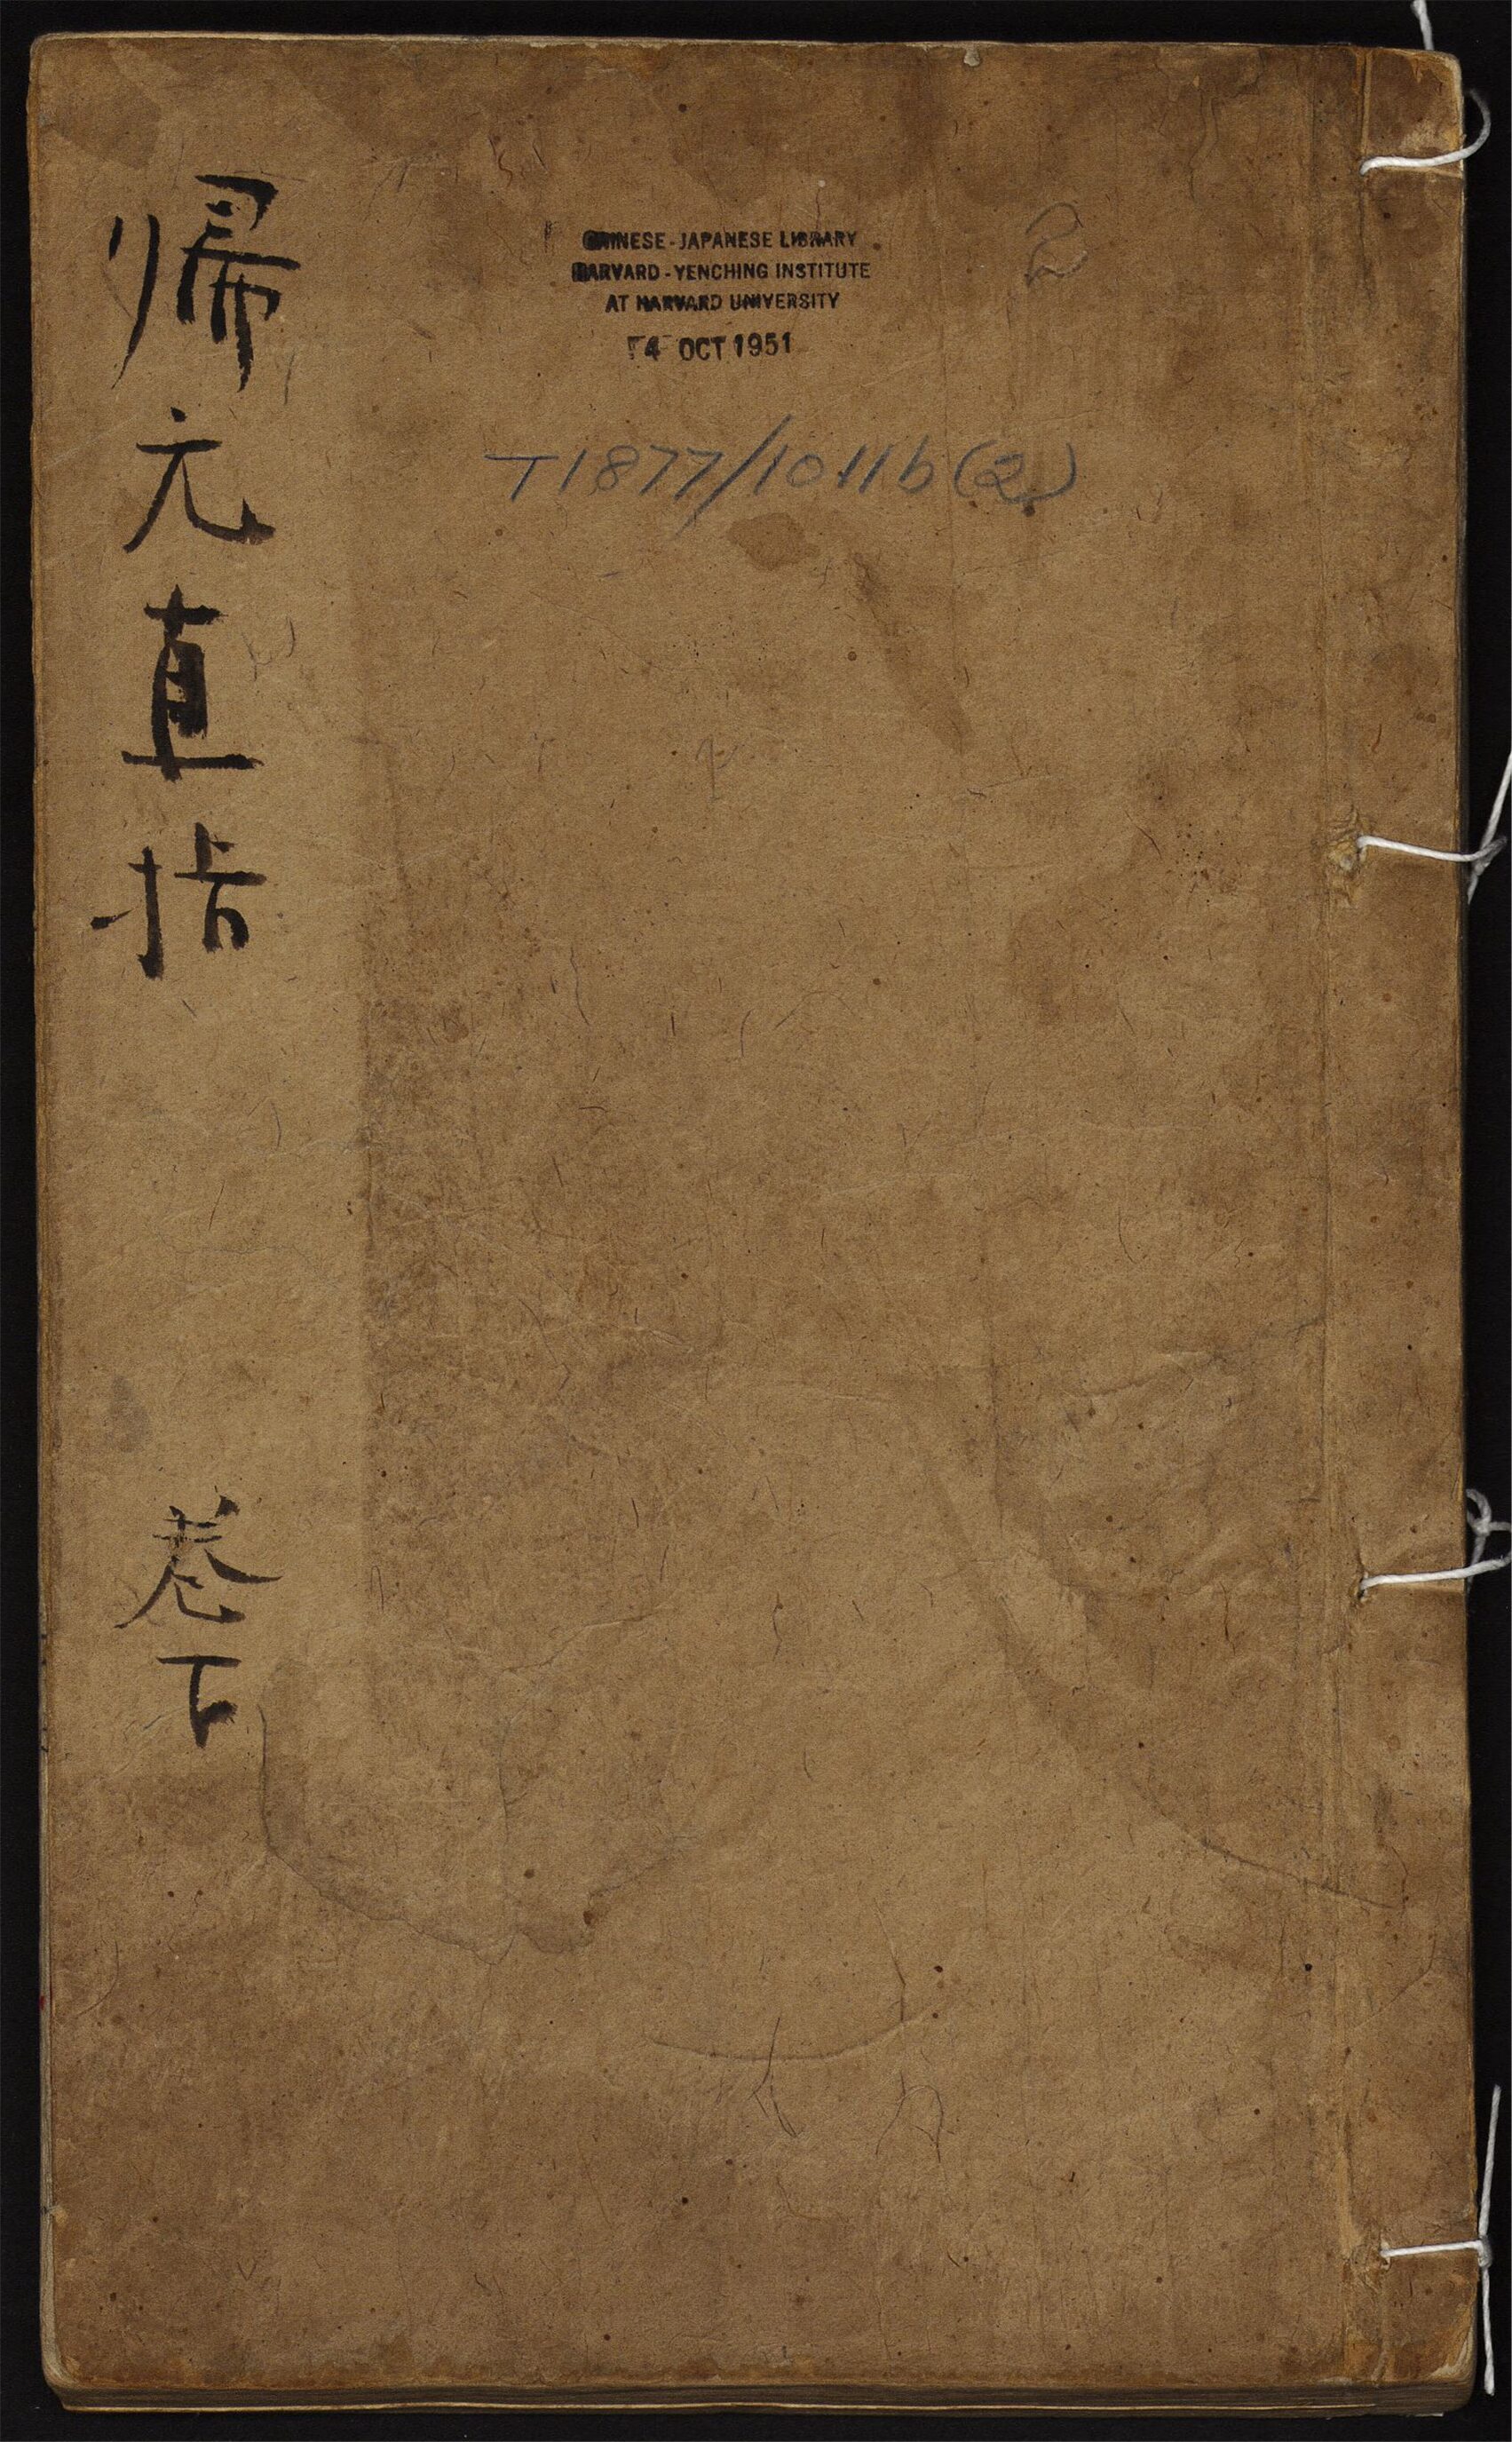 帰元直指
卷下
CHINESE-JAPANESE LIBRARY
HARVARD-YENCHING INSTITUTE
AT HARVARD UNIVERSITY
4 OCT 1951
2
T1877/1011b(2)